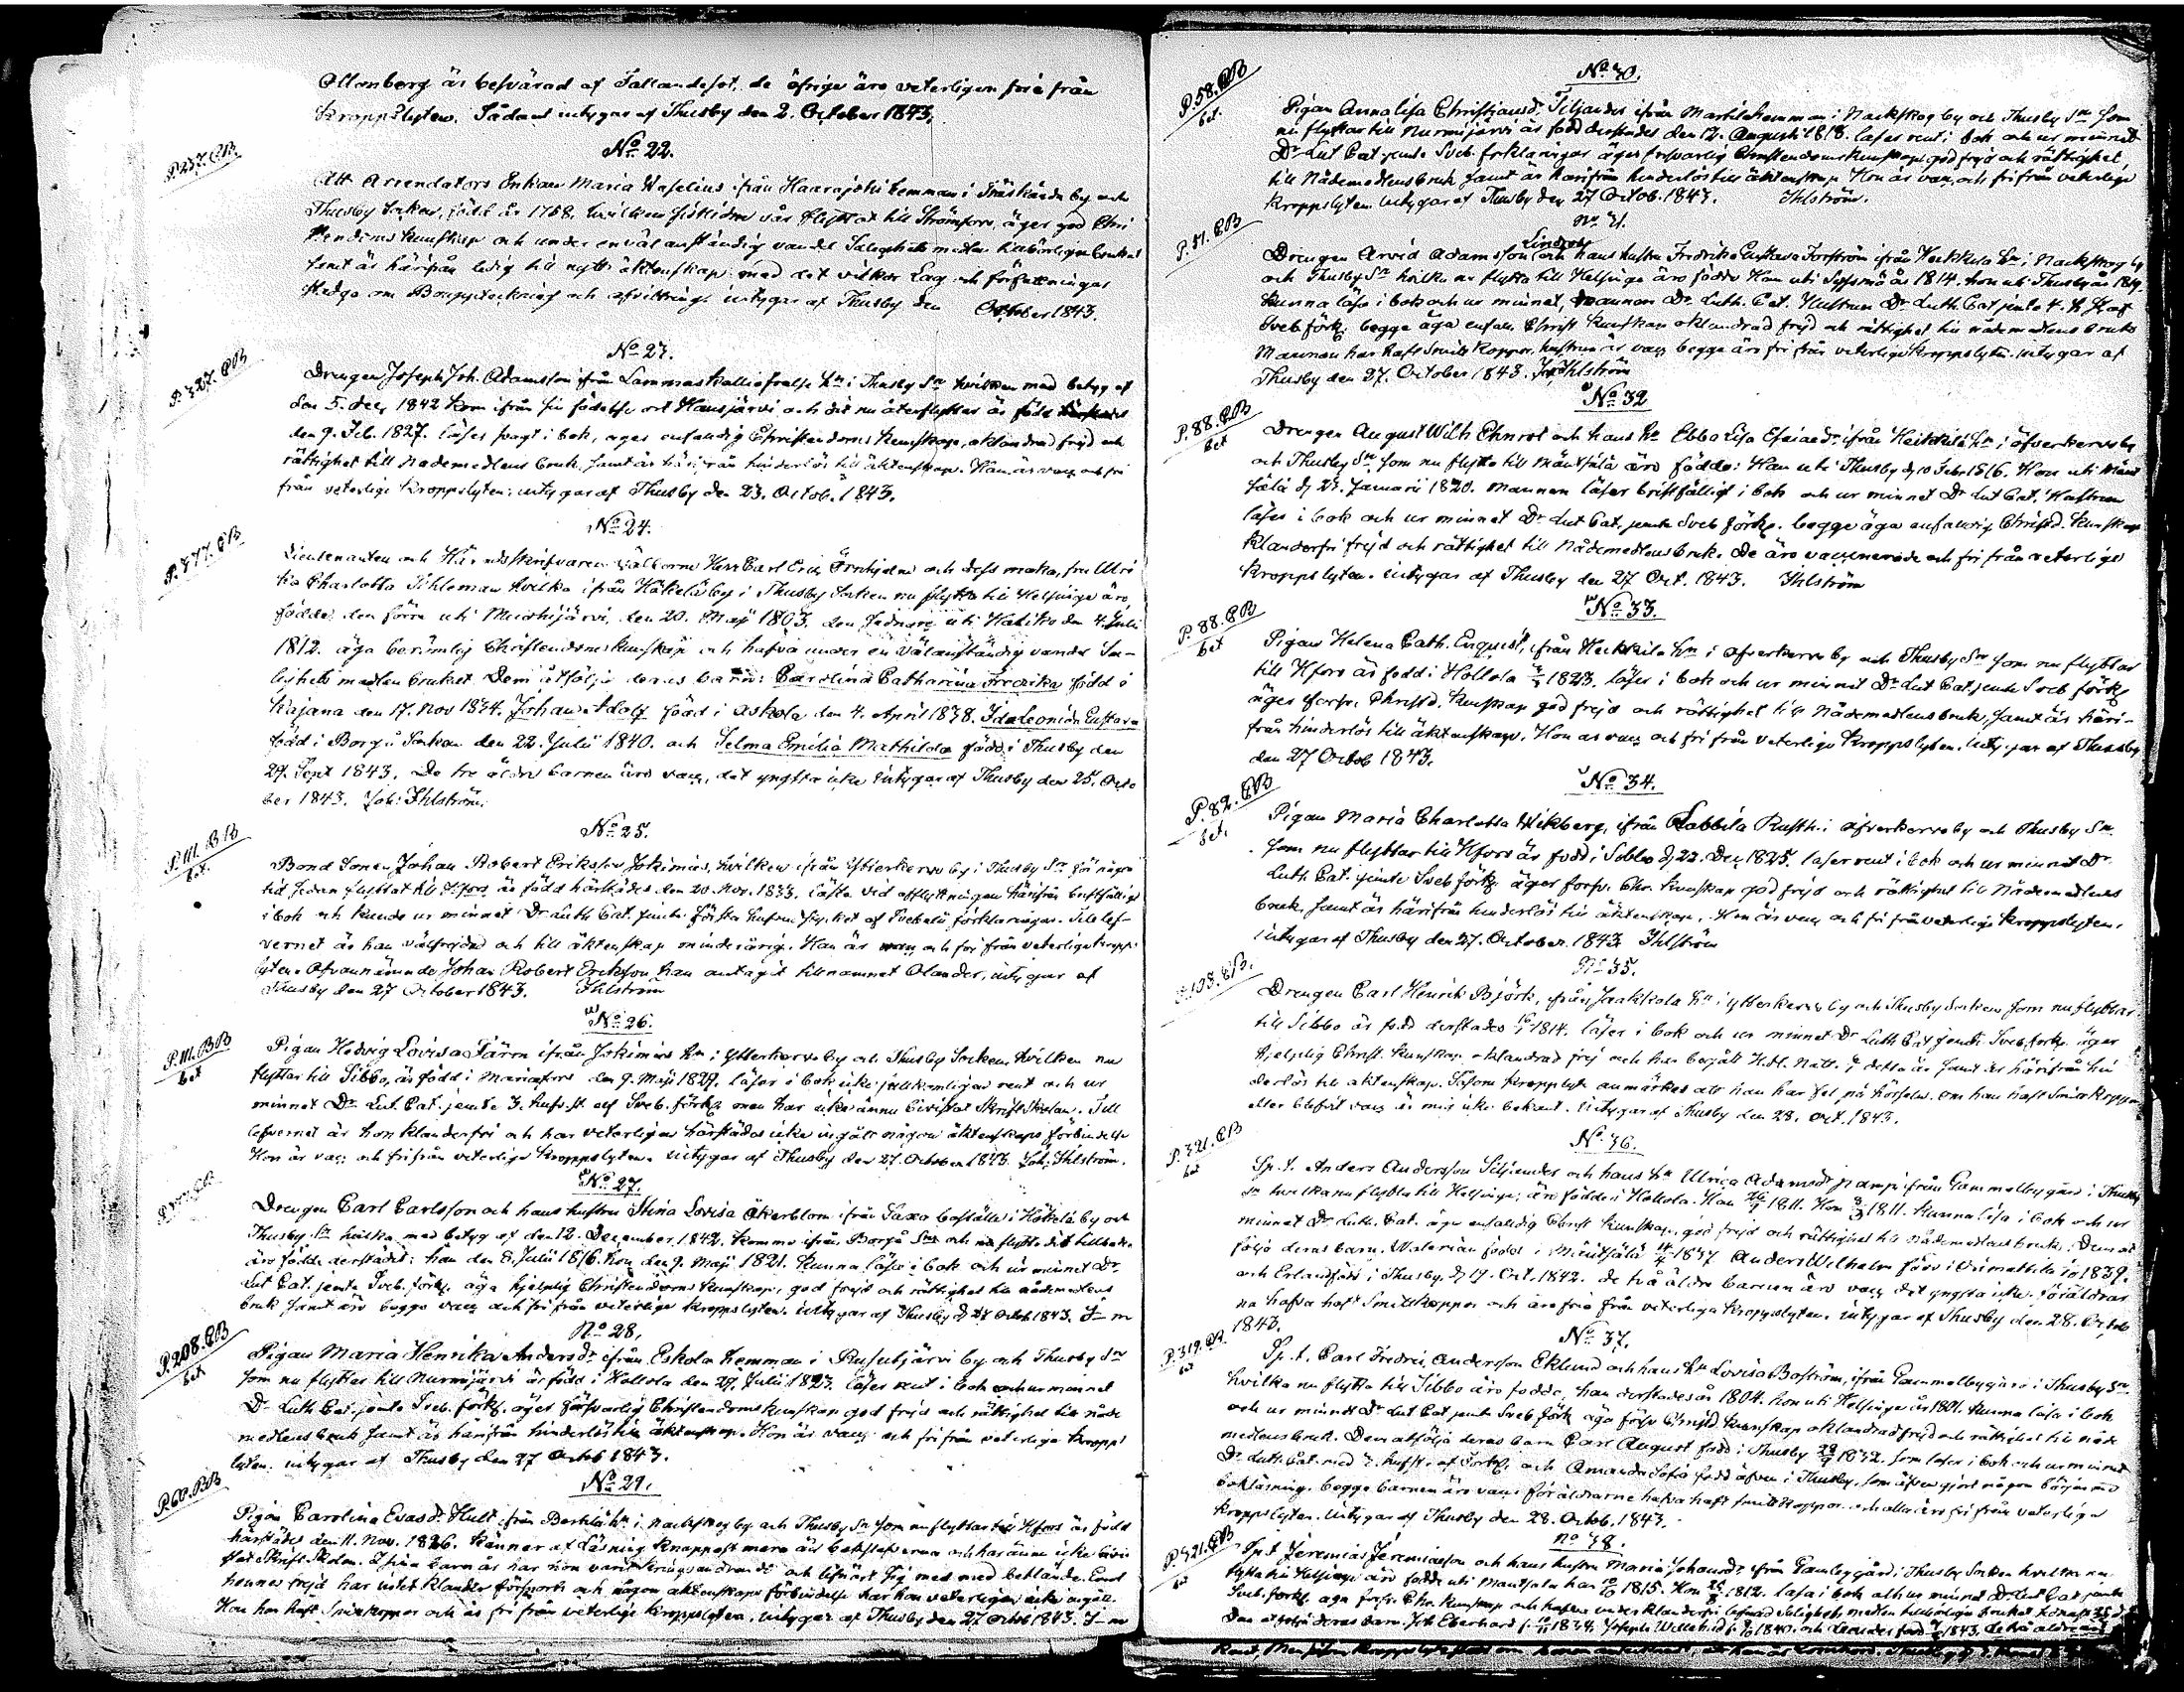 Ollonberg är besvärad af Fallandesot, de öfrige äro veterligen fria från
Kroppslyten. Sådant intygar af Thusby den 2. October 1843.
P.237. CB
No 22.
Att Arrendators Enkan Maria Waselius ifrån Haarajoki hemman i Träskända by och
Thusby Socken, född år 1758, hvilken sistlidne vår flyttat till Strömfors, äger god Chri
stendoms kunskap och under en väl anständig vandel Salighets medlen behörigen brukat
samt är härifrån ledig till nytt äktenskap med det vilkor Lag och författningar
stadga om Bouppteckning och afvittring. intygar af Thusby den October 1843.
P.327. CB
No 23.
Drengen Joseph Joh. Adamsson ifrån Lammaskallio frälse hn i Thusby Sn hvilken med betyg af
den 5. dec. 1842 kom ifrån sin födelse ort Hausjärvi och dit nu återflyttar är född
den 9. Feb. 1827. läser svagt i bok, äger enfaldig Christendoms kunskap, oklandrad frejd och
rättighet till Nådemedlens bruk, samt är härifrån hinderlös till äktenskap. Han är vacc. och fri
från veterlige Kroppslyten; intygar af Thusby den 23. Octob. 1843.
P.377. CB
No 24.
Lieutenanten och Häradsskrifvaren Välborne Herr Carl Eric Örnhjelm och dess maka, fru Ulri
ka Charlotta Tihleman hvilka ifrån Hökelä by i Thusby Socken nu flytta till Helsinge äro
födde, den förre uti Muorhijärvi, den 20. Maji 1803. den sednare uti Hatiko den 4. Juli
1812. äga berömlig Christendoms kunskap och hafva under en välanständig vandel Sa-
lighets medlen brukat. Dem åtfölja deras barn: Carolina Catharina Fredrika född i
Kajana den 17. Nov 1834. Johan Adolf född i Askola den 4. April 1838. Ida Leonida Gustava
född i Borgå Socken den 22. Julii 1840. och Selma Emilia Mathilda född i Thusby den
29. Sept 1843. De tre äldre barnen äro vacc. det yngsta icke intygar af Thusby den 25. Octo
ber 1843. Joh: Ihlström.
P.111. BB
bet.
No 25.
Bond Sonen Johan Robert Eriksson Jokimies, hvilken ifrån Ytterkervo by i Thusby Sn för någon
tid sedan flyttat till Hfors är född härstädes den 20. Nov. 1833. läste vid afflyttningen härifrån bristfälligt
i bok och kunde ur minnet Dr Luth Cat. jemte första hufvudstycket af Svebelii förklaringar. Till lef-
vernet är han välfrejdad och till äktenskap minderårig. Han är vacc. och fri från veterliga kropps
lyten. Ofvannämnde Johan Robert Erikson har antagit tillnamnet Olander, intygar af
Thusby den 27 October 1843. Ihlström
P.111. BB
bet
No 26.
Pigan Hedvig Lovisa Färm ifrån Jokimies hn i Ytterkervo by och Thusby Socken, hvilken nu
flyttar till Sibbo, är född i Mariefors den 9. Maji 1827. läser i bok icke fullkomligen rent och ur
minnet Dr Lut. Cat. jemte 3. hufv.st. af Sveb. förkl. men har icke ännu bivistat Skriftskolan. Till
lefvernet är hon klanderfri och har veterligen härstädes icke ingått någon äktenskaps förbindelse
Hon är vacc. och fri från veterlige Kroppslyten. intygar af Thusby den 27. October 1843. Joh: Ihlström.
No 27.
Drengen Carl Carlsson och hans hustru Stina Lovisa Åkerblom ifrån Saxo boställe i Hökelä by och
Thusby Sn hvilka med betyg af den 12. December 1842. kommo ifrån Borgå Sn och nu flytta dit tillbaka
äro födde derstädes: han den 8. Julii 1816. hon den 9. Maji 1821. Kunna läsa i bok och ur minnet Dr
Lut Cat. jemte Sveb. förkl. äga hjelplig Christendoms kunskap, god frejd och rättighet till nådemedlens
bruk samt äro begge vacc. och fri från veterlige Kroppslyten. intygar af Thusby d 27 Octob 1843. I—m
P.208. CB
bet
No 28.
Pigan Maria Henrika Andersdr ifrån Eskola hemman i Rusutjärvi by och Thusby Sn
som nu flyttar till Nurmijärvi är född i Hollola den 27. Julii 1823. läser rent i bok och ur minnet
Dr Luth Cat. jemte Sveb. förkl. äger försvarlig Christendomskunskap god frejd och rättighet till nåde
medlens bruk samt är härifrån hinderlös till äktenskap. Hon är vacc. och fri från veterlige Kropps
lyten. intygar af Thusby den 27 Octob 1843.
P.60. BB
No 29.
Pigan Carolina Evasdr Hult ifrån Bertilä hn i Nackskog by och Thusby Sn som nu flyttar till Hfors är född
härstädes den 11. Nov. 1826. känner af Läsning knappast mera än bokstäfverna och har ännu icke bivi
stat Skrift Skolan. Ifrån barn år har hon varit kringvandrande och lifnärt sig med med betlande. Emot
hennes frejd har intet klander försports och någon äktenskaps förbindelse har hon veterligen icke ingått.
Hon har haft Smittkoppor och är fri från veterlige Kroppslyten, intygar af Thusby den 27 Octob 1843. I—m
P.58. CB
bet.
No 30.
Pigan Anna Lisa Christiansdr Siljander ifrån Martis hemman i Nackskog by och Thusby Sn som
nu flyttar till Nurmijärvi är född derstädes den 12. Augusti 1818. läser rent i bok och ur minnet
Dr Lut Cat jemte Sveb. förklaringar äger försvarlig Christendoms kunskap, god frejd och rättighet,
till Nådemedlens bruk samt är härifrån hinderlös till äktenskap. Hon är vacc. och fri från veterlige
Kroppslyten. intygar af Thusby den 27 Octob. 1843. Ihlström.
P.51. CB
No 31.
Drengen Arvid Adamsson Lindroos och hans hustru Fredrika Gustava Forström ifrån Heikkila hn i Nackskog by
och Thusby Sn hvilka nu flytta till Helsinge äro födde Han uti Sysmä år 1814. hon uti Thusby år 1819.
kunna läsa i bok och ur minnet, mannen Dr Luth. Cat. Hustrun Dr Luth. Cat jemte 4. h. st af
Sveb. förkl. begge äga enfald. Christ kunskap oklandrad frejd och rättighet till nådemedlens bruk
Mannen har haft Smittkoppor, hustrun är vacc. begge äro fri från veterlige Kroppslyten. intygar af
Thusby den 27. October 1843. Joh Ihlström
P.88. CB
bet
No 32
Drengen August Wilh Ehnrot och hans hu Ebba Lisa Esaiaedr ifrån Heikkilä hn i Öfverkervo by
och Thusby Sn som nu flytta till Mäntsälä äro födde: Han uti Thusby d 10 Febr 1816. Hon uti Mänt
sälä d 23. Januarii 1820. Mannen läser bristfälligt i bok och ur minnet Dr Lut Cat. Hustrun
läser i bok och ur minnet Dr Lut Cat. jemte Sveb förkl. begge äga enfaldig Christd. kunskap
klanderfri frejd och rättighet till Nådemedlens bruk. De äro vaccinerade och fri från veterlige
Kroppslyten. intygar af Thusby den 27 Oct. 1843. Ihlström
P.88. CB
bet
No 33.
Pigan Helena Cath. Enquist, ifrån Heikkila hn i Öfverkervo by och Thusby Sn som nu flyttar
till Hfors är född i Hollola 1823. läser i bok och ur minnet Dr Lut Cat jemte Sveb förkl
äger försv. Christd. kunskap god frejd och rättighet till Nådemedlens bruk, samt är häri-
från hinderlös till äktenskap. Hon är vacc och fri från veterlige Kroppslyten. intygar af Thusby
den 27 Octob 1843.
P.82. CB
bet.
No 34.
Pigan Maria Charlotta Wikberg, ifrån Labbila Rusth: i Öfverkervo by och Thusby Sn
som nu flyttar till Hfors är född i Sibbo d 22. Dec 1825. läser rent i bok och ur minnet Dr
Luth. Cat. jemte Sveb förkl. äger försv. Chr. kunskap god frejd och rättighet till Nådemedlens
bruk, samt är härifrån hinderlös till äktenskap. Hon är vacc och fri från veterlige Kroppslyten.
intygar af Thusby den 27. October 1843 Ihlström
No 35.
Drengen Carl Henrik Björk, ifrån Jaakkola hn i Ytterkervo by och Thusby Socken som nu flyttar
till Sibbo är född derstädes 1814. läser i bok och ur minnet Dr Luth Cat jemte Sveb. förkl. äger
hjelplig Christ. kunskap oklandrad frejd och har begått H.H. Natt. i detta år samt är härifrån hin
derlös till äktenskap. Såsom kroppslyte anmärkes att han har fel på hörseln. om han haft Smittkoppor
eller blifvit vacc är mig icke bekant. intygar af Thusby den 28. Oct. 1843.
P.321. CB
bet
No 36.
Sp.t. Anders Andersson Siljander och hans hu Ulrica Adamsdr ifrån Gammelby gård i Thusby
Sn hvilka nu flytta till Helsinge; äro födde i Hollola. Han 1811. Hon 1811. Kunna läsa i bok och ur
minnet Dr Luth. Cat. äga enfaldig Christ kunskap, god frejd och rättighet till Nådemedlens bruk. Dem åt
följa deras barn. Walerian född i Mäntsälä 1837 Anders Wilhelm född i Orimattila 1839.
och Erland född i Thusby d 17. Oct. 1842. de två äldre barnen äro vacc det yngsta icke. föräldrar
na hafva haft Smittkoppor och äro fria från veterliga Kroppslyten. intygar af Thusby den 28. Octob
1843.
P.319. CB.
bet
No 37.
Sp.t. Carl Fredric Andersson Eklund och hans hu Lovisa Boström, ifrån Gammelby gård i Thusby Sn
hvilka nu flytta till Sibbo äro födde, han derstädes år 1804. hon uti Helsinge år 1801. kunna läsa i bok
och ur minnet Dr Lut Cat jemte Sveb förk äga försv Christd kunskap oklandrad frejd och rättighet till nåde
medlens bruk. Dem åtfölja deras barn Carl August född i Thusby 1832. som läser i bok och ur minnet
Dr Luth. Cat. med 2. hufst. af förkl. och Amanda Sofia född äfven i Thusby, som äfven gjort någon början med
bokläsning. begge barnen äro vacc föräldrarne hafva haft Smittkoppor och alla äro fri från veterlige
Kroppslyten. intygar af Thusby den 28. Octob. 1843.
P.321. CB
bet
No 38.
Sp.t Jeremias Jeremiasson och hans hustru Maria Johansdr ifrån Gamleby gård i Thusby Socken hvilka nu
flytta till Helsinge äro födde uti Mäntsälä han 1815. Hon 1812. läsa i bok och ur minnet Dr Lut Cat jemte
Sveb. förkl. äga försv. Chr. kunskap och hafva under klanderfri lefnad Salighets medlen behörigen brukat
Dem åtfölja deras barn. Joh Eberhard 1838. Joseph Willehad 1840. och Leander född 1843. de två äldre